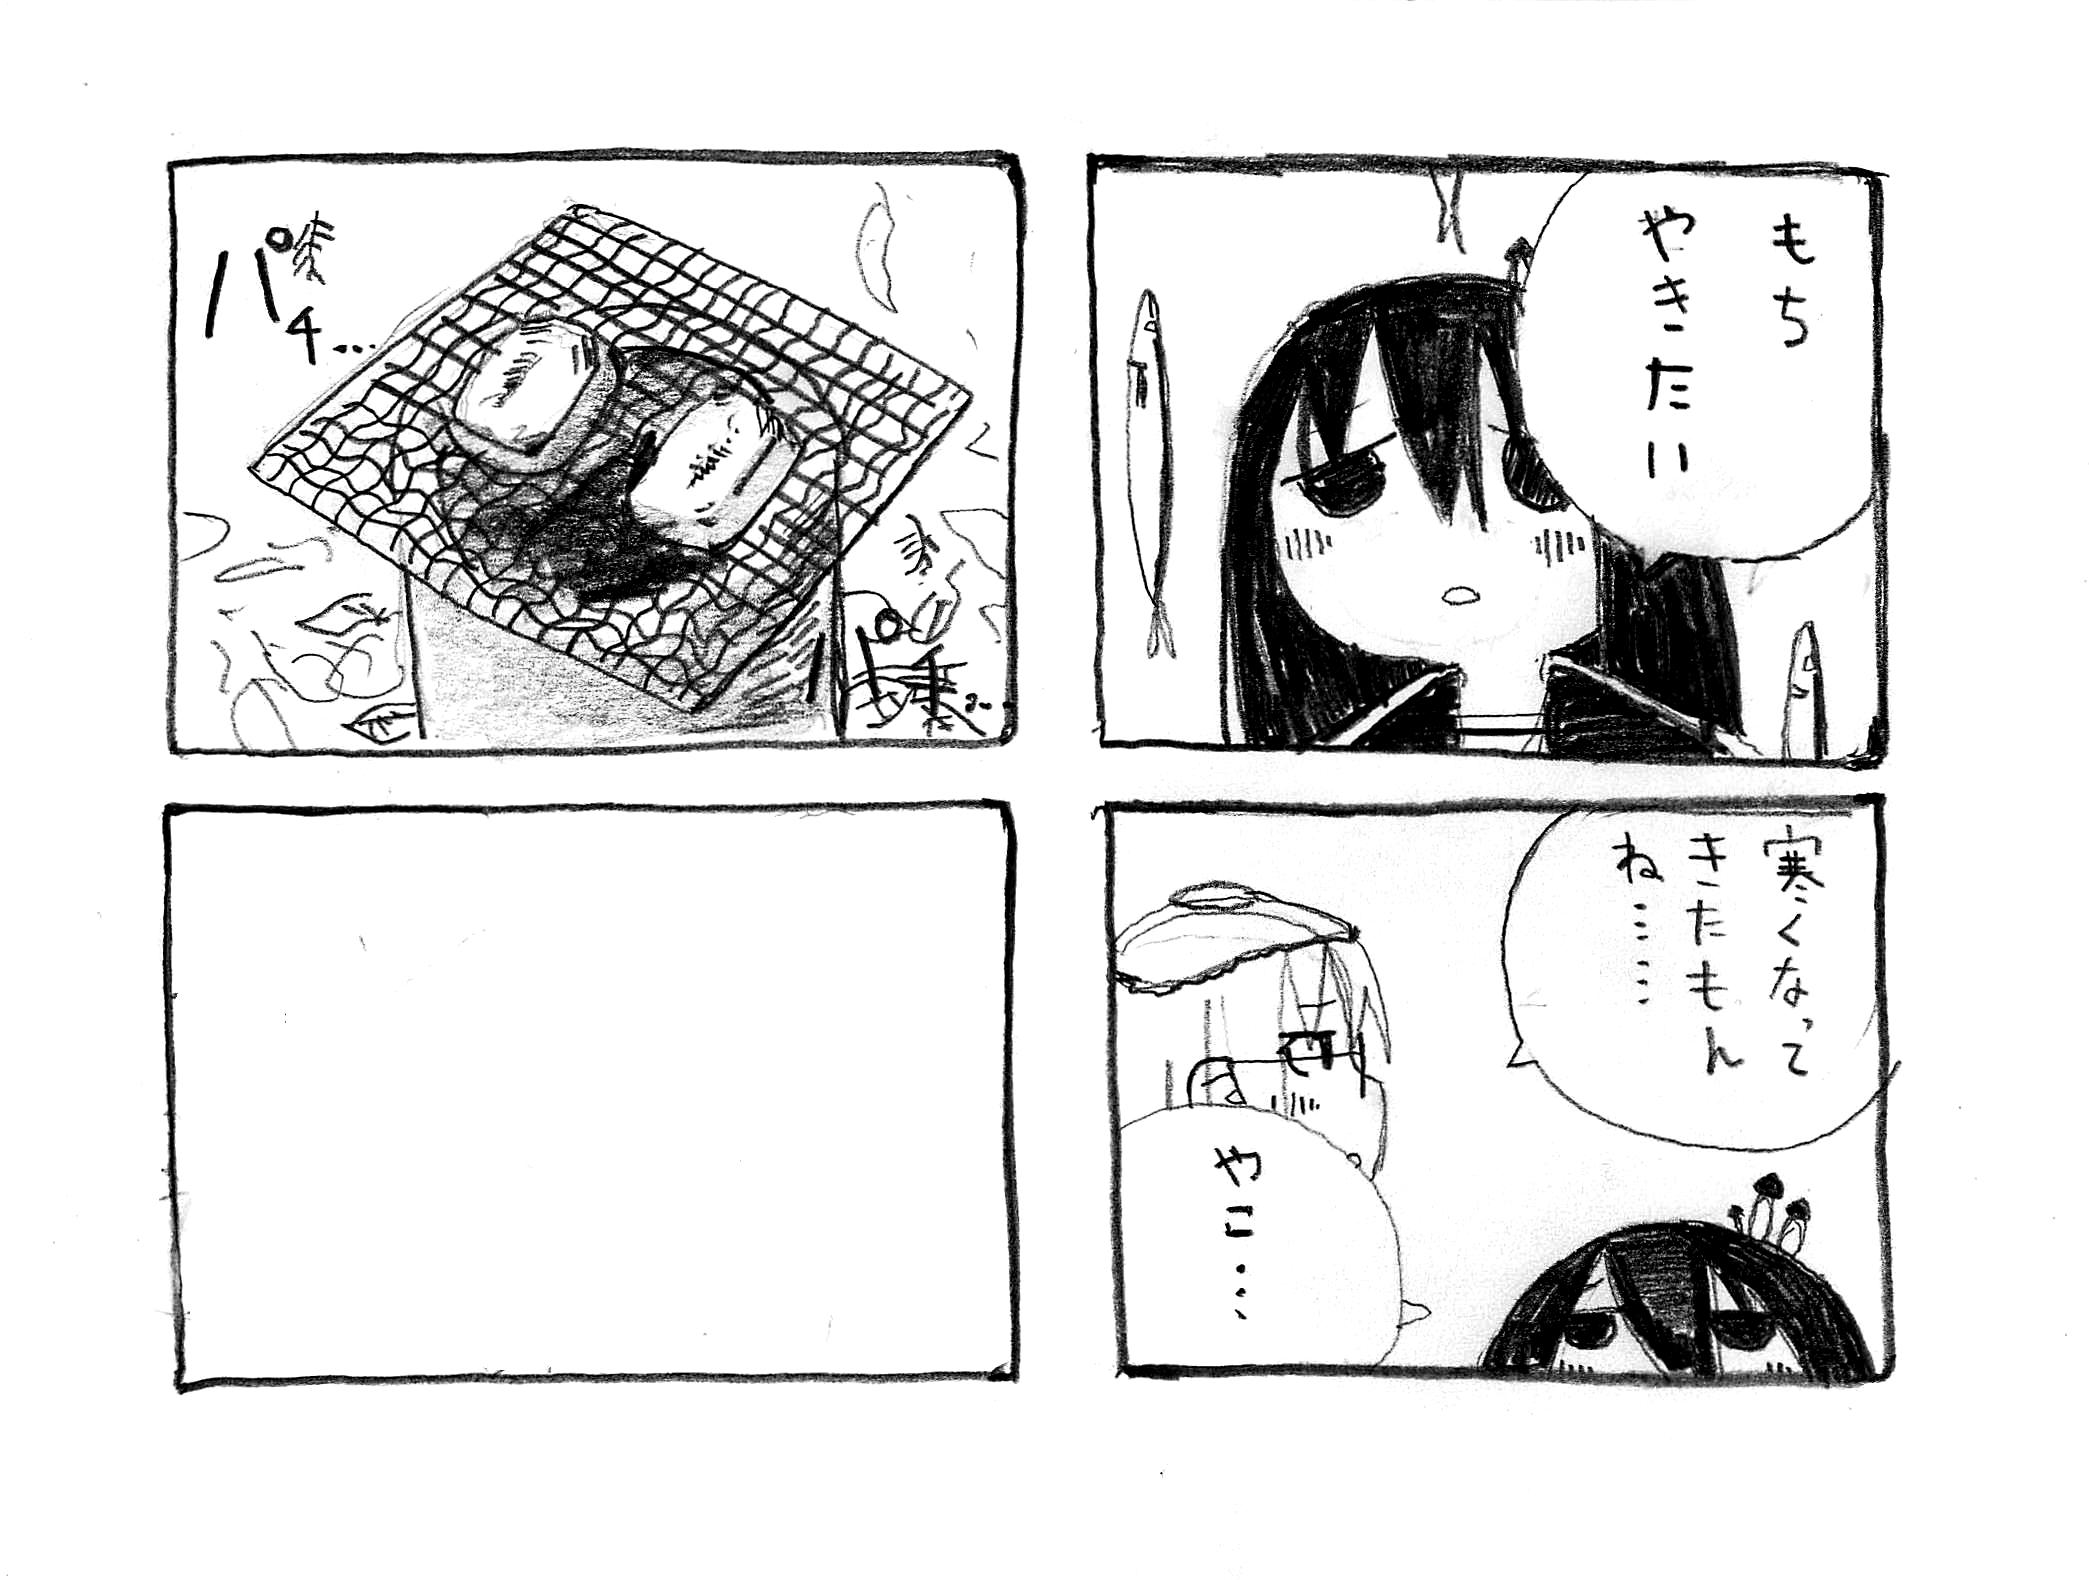 もち
やきたい
寒くなって
きたもん
ね……
やロ…
パチ…
パチ…